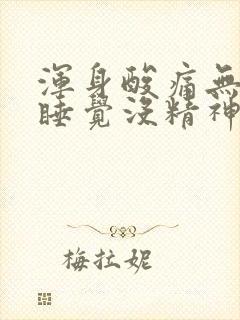 渾身酸痛無
睡覺沒精神
梅拉妮